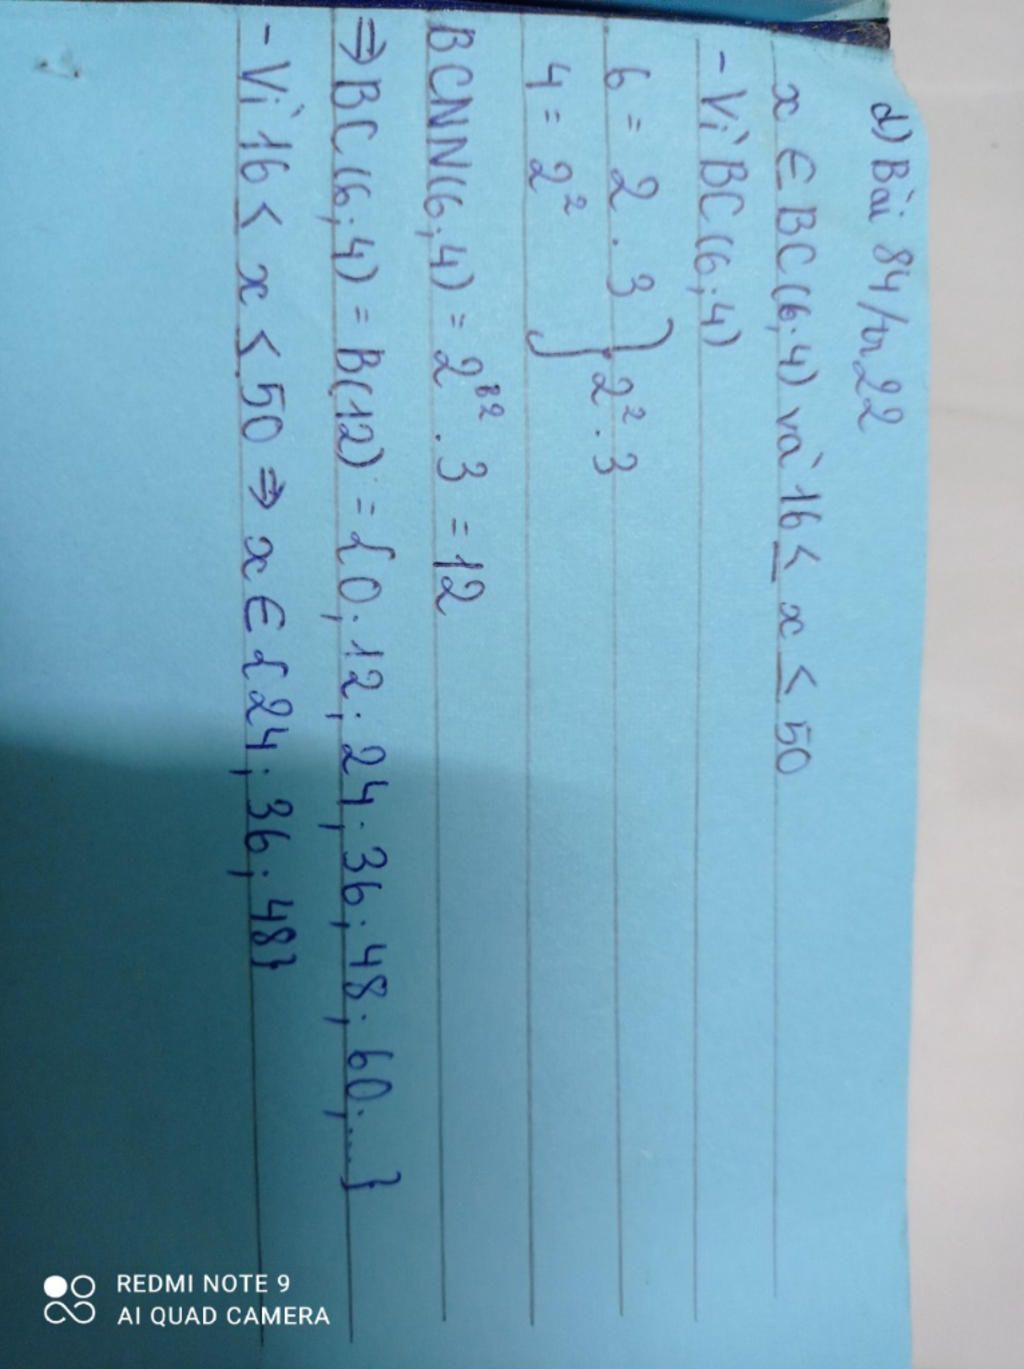 d) Bài 84/tr22
x ∈ BC(6;4) và 16 ≤ x ≤ 50
- Vì BC(6;4)
6 = 2 . 3 } 2² . 3
4 = 2²
BCNN(6;4) = 2² . 3 = 12
⇒ BC(6;4) = B(12) = {0; 12; 24; 36; 48; 60; ...}
- Vì 16 < x ≤ 50 ⇒ x ∈ {24; 36; 48}
REDMI NOTE 9
AI QUAD CAMERA